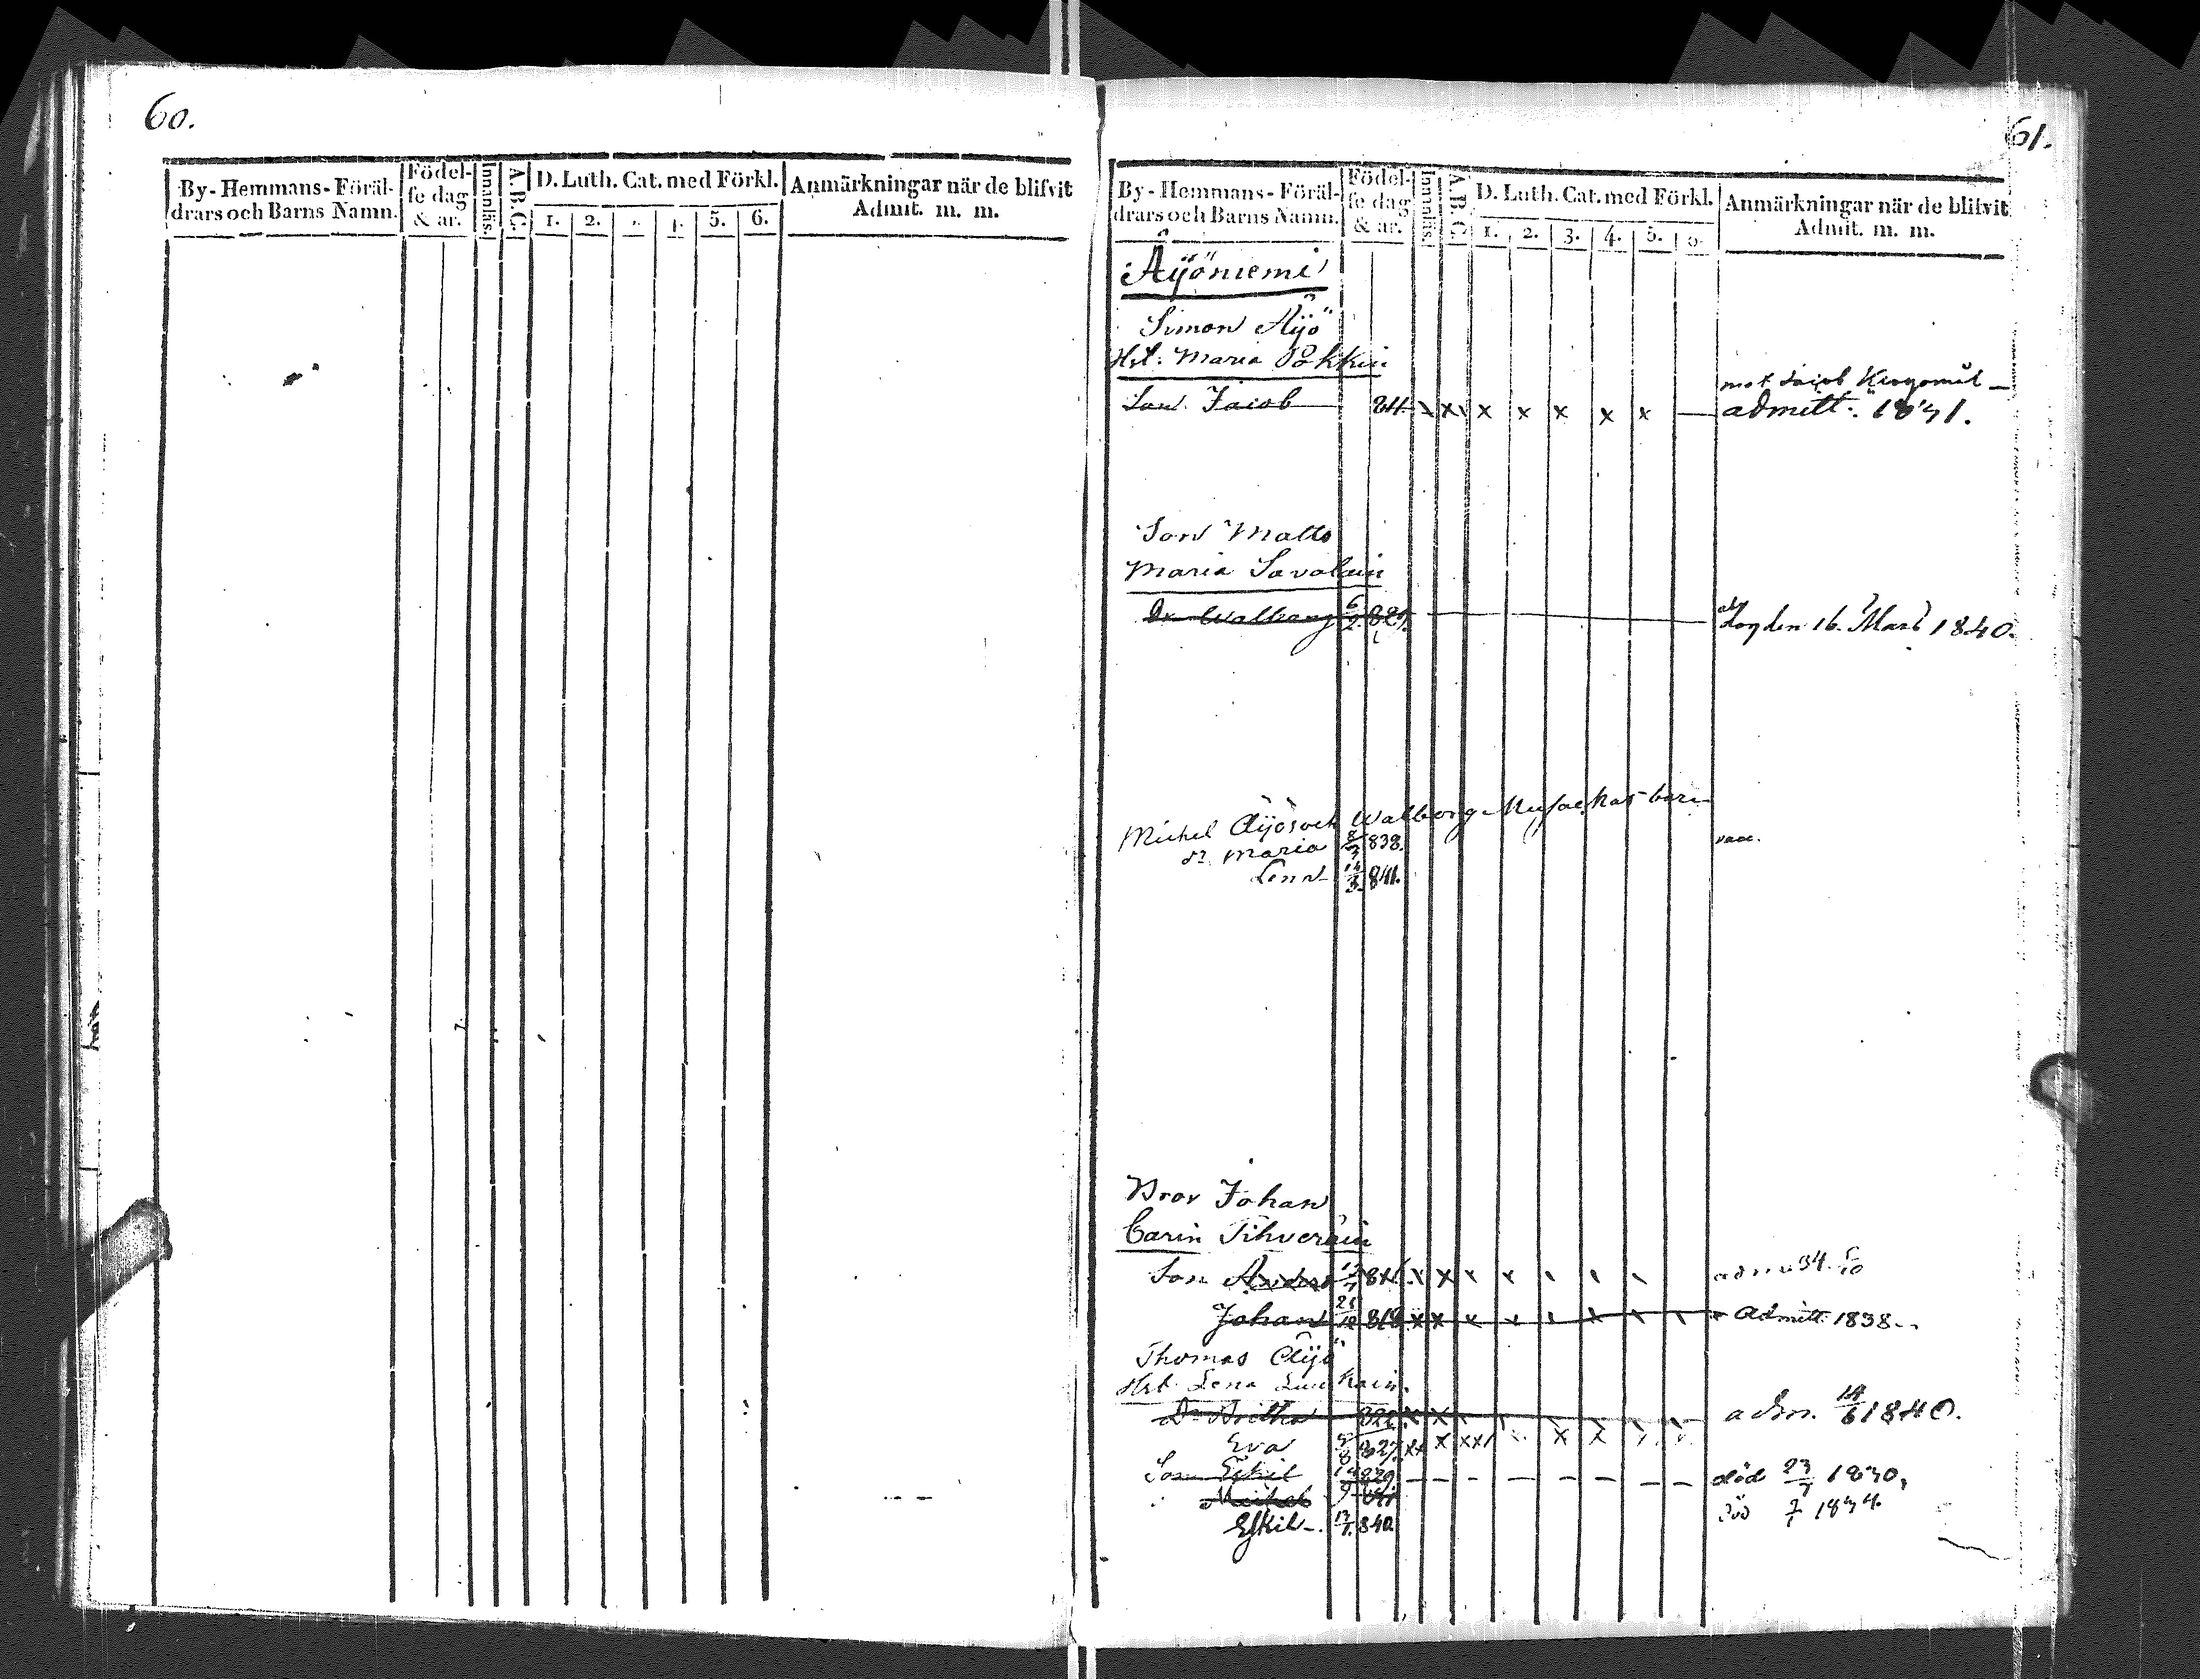 60.
By- Hemmans- Föräl-
drars och Barns Namn.
Födel-
se dag
& år.
Innanläs.
A.B.C.
D. Luth. Cat. med Förkl.
1. 2. 4. 5. 6.
Anmärkningar när de blifvit
Admit. m. m.
61.
By- Hemmans- Föräl-
drars och Barns Namn.
Födel-
se dag
& år.
Innanläs.
A.B.C.
D. Luth. Cat. med Förkl.
1. 2. 3. 4. 5. 6.
Anmärkningar när de blifvit
Admit. m. m.
Äijöniemi
Simon Äijö
Hst. Maria Pökkin
Son Jacob x x x x x x admitt. 1831.
Son Matts
Maria Savolain
Dr Walborg 6/2 829. den 16. Mars 1840.
Michel Äijös och Walborg barn
Dr Maria 8/3 838. vacc.
Lena 14/3 841.
Bror Johan
Carin Tihverain
Son Anders x x adm. 34.
Johan 818 x x Admitt. 1838
Thomas Äijö
Hst. Lena
Dr Britha 822 x x adm. 14/6 1840.
Eva 827. xx x x x
Son Eskil 14/9 829 — — — — — död 23/7 1830,
Michel död 7/1 1834.
Eskil 840.